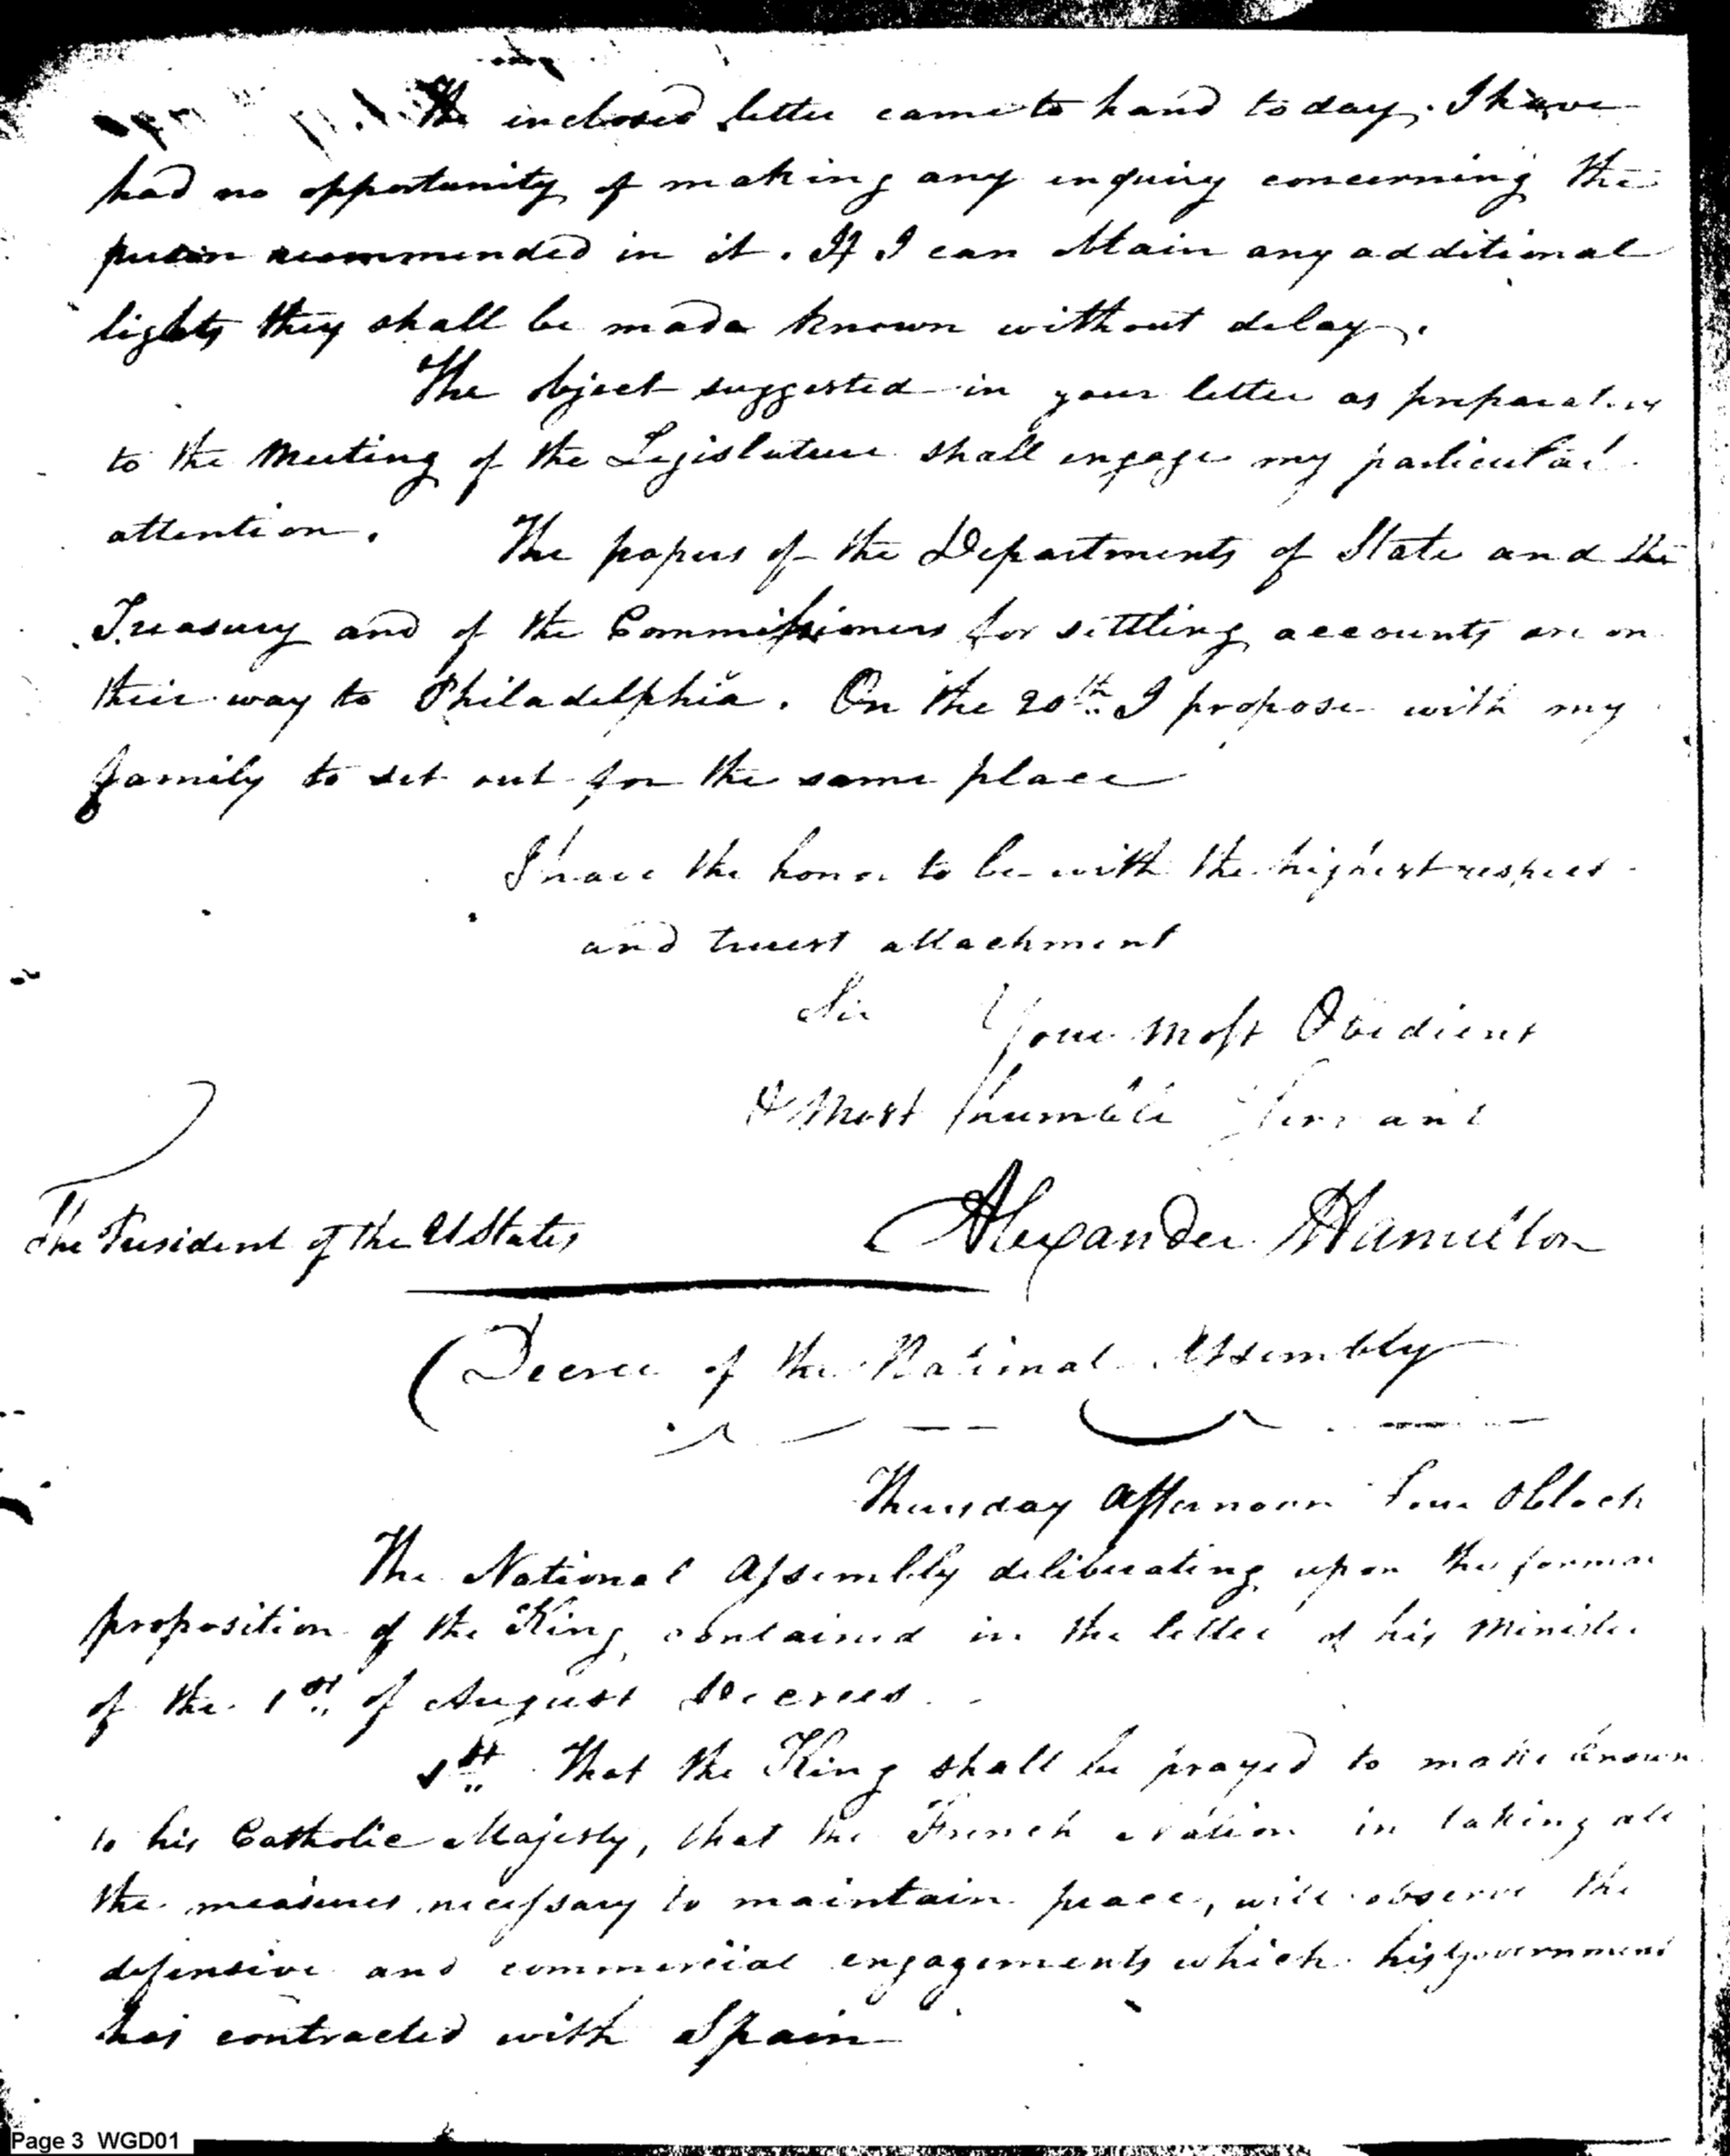 The inclosed letter came to hand today. I have
had no opportunity of making any enquiry concerning the
person recommended in it. If I can obtain any additional
lights they shall be made known without delay.
The object suggested in your letter as preparatory
to the meeting of the Legislature shall engage my particular
attention. The papers of the Departments of State and the
Treasury and of the Commissioners for settling accounts are on
their way to Philadelphia. On the 20th I propose with my
family to set out for the same place
I have the honor to be with the highest respect
and truest attachment
Sir Your most Obedient
& most humble Servant
The President of the UStates Alexander Hamilton
(Decree of the National Assembly
Thursday Afternoon Four OClock
The National Assembly deliberating upon the formal
proposition of the King contained in the letter of his Minister
of the 1st of August Decrees
1st That the King shall be prayed to make known
to his Catholic Majesty, that the French Nation in taking all
the measures necessary to maintain peace, will observe the
defensive and commercial engagements which his government
has contracted with Spain
Page 3 WGD01